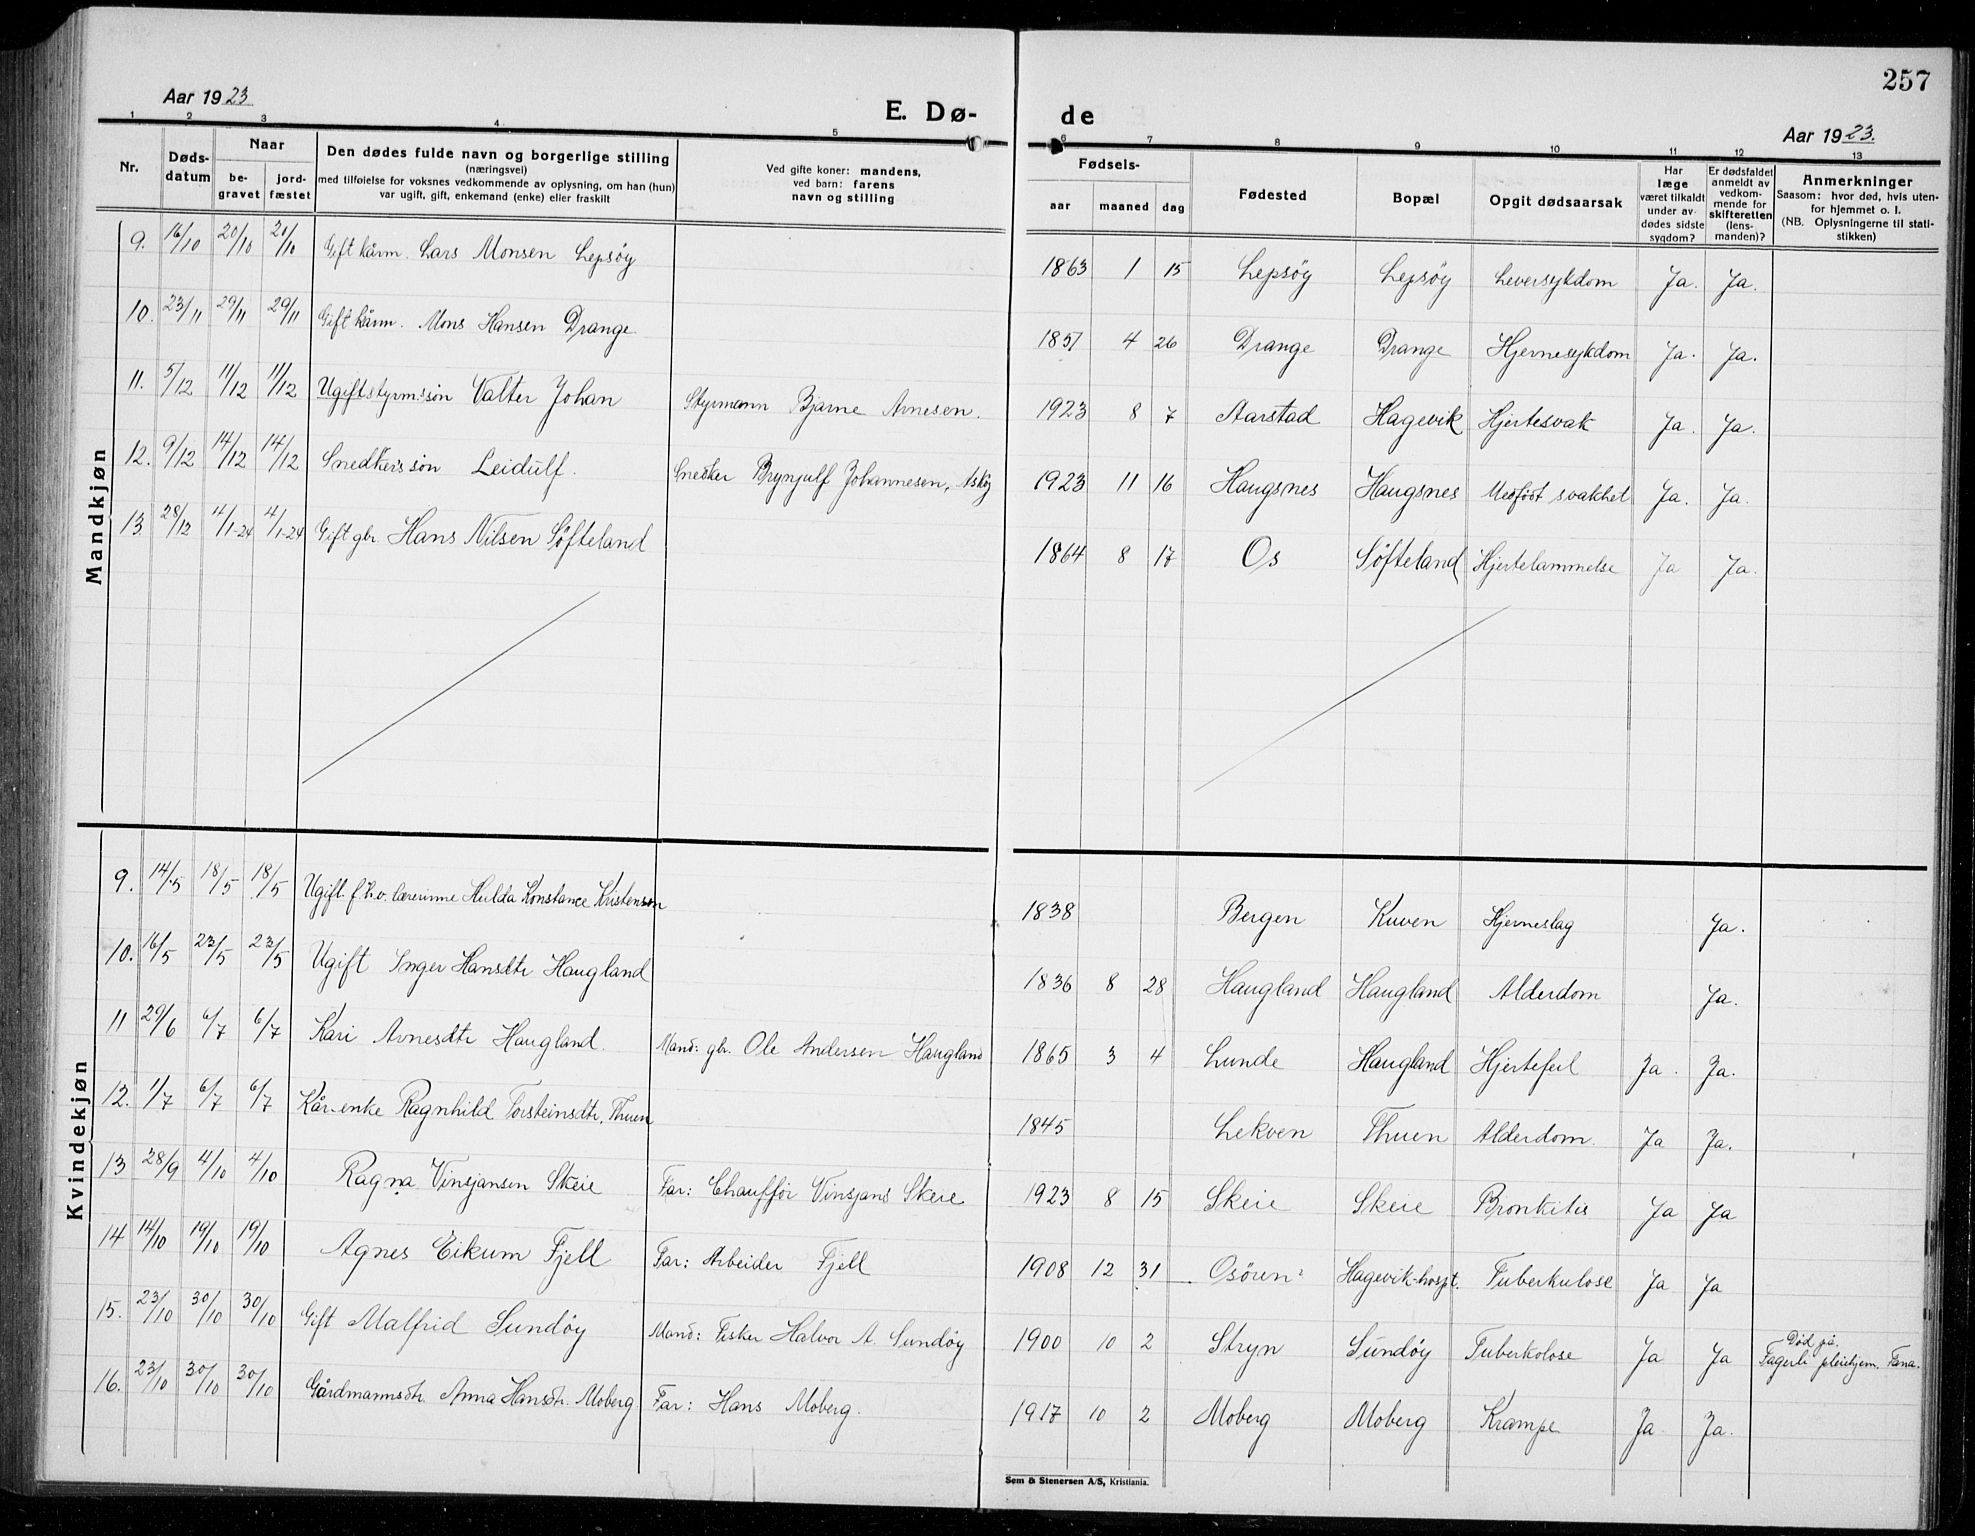 257
Aar 1923
E. Dø-
de
Aar 1923.
1 2 3 4 5 6 7 8 9 10 11 12 13
Nr.
Døds-
datum
Naar
be-
gravet
jord-
fæstet
Den dødes fulde navn og borgerlige stilling
(næringsvei)
med tilføielse for voksnes vedkommende av oplysning, om han (hun)
var ugift, gift, enkemand (enke) eller fraskilt
Ved gifte koner: mandens,
ved barn: farens
navn og stilling
Fødsels-
aar maaned dag
Fødested
Bopæl
Opgit dødsaarsak
Har
læge
været tilkaldt
under av-
dødes sidste
sygdom?
Er dødsfaldet
anmeldt av
vedkom-
mende for
skifteretten
(lens-
manden)?
Anmerkninger
Saasom: hvor død, hvis uten-
for hjemmet o. l.
(NB. Oplysningerne til stati-
stikken)
Mandkjøn
9. 16/10 20/10 20/10 Gift kårm. Lars Monsen Lepsöy 1863 1 15 Lepsöy Lepsöy Leversykdom Ja. Ja.
10. 23/11 29/11 29/11 Gift kårm. Mons Hansen Drange 1851 4 26 Drange Drange Hjernesykdom Ja. Ja.
11. 5/12 11/12 11/12 Ugift styrm.søn Valter Johan Styrmann Bjarne Arnesen. 1923 8 7 Aarstad Hagevik Hjertesvak Ja. Ja.
12. 9/12 14/12 14/12 Snedkers søn Leidulf. Snedker Brynjulf Johannesen, Askög 1923 11 16 Haugsnes Haugsnes Medfödt svakhet Ja. Ja.
13. 28/12 4/1-24 4/1-24 Gift gbr. Hans Nilsen Söfteland 1864 8 17 Os Söfteland Hjertelammelse Ja Ja.
Kvindekjøn
9. 14/5 18/5 18/5 Ugift. fhv. lærerinne Hulda Konstance Kristensen 1838 Bergen Kuven Hjerneslag Ja.
10. 16/5 23/5 23/5 Ugift Inger Hansdtr Haugland 1836 8 28 Haugland Haugland Alderdom Ja.
11 29/6 6/7 6/7 Kari Arnesdtr Haugland. Mand: gbr. Ole Andersen Haugland 1865 3 4 Lunde Haugland Hjertefeil Ja. Ja.
12. 1/7 6/7 6/7 Kår-enke Ragnhild Torsteinsdtr. Thuen 1845 Lekven Thuen Alderdom. Ja Ja.
13 28/9 4/10 4/10 Ragna Vinsjansen Skeie Far: Chaufför Vinsjans Skeie 1923 8 15 Skeie Skeie Bronkitis Ja Ja
14 14/10 19/10 19/10 Agnes Eikum Fjell Far: Arbeider Fjell 1908 12 31 Osören Hagevik-hospt. Tuberkulose Ja Ja
15. 23/10 30/10 30/10 Gift Malfrid Sundöy Mand: Fisker Halvor A. Sundöy 1900 10 2 Stryn Sundöy Tuberkolose Ja Ja Död på Fagerli pleiehjem. Fana.
16. 23/10 30/10 30/10 Gårdmannsdtr. Anna Hansdtr. Moberg Far: Hans Moberg. 1917 10 2 Moberg Moberg Krampe Ja. Ja.
Sem & Stenersen A/S, Kristiania.